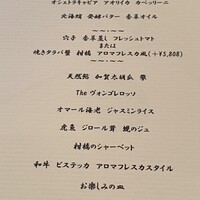 オシェトラキャビア アオリイカ カペッリーニ
北海鰭 発酵バター 香草オイル
～～・～～
穴子 香草蒸し フレッシュトマト
または
焼きタラバ蟹 柑橘 アロマフレスカ風(+¥5,808)
～～・～～
天然鮎 加賀太胡瓜 蓼
The ヴォンゴレロッソ
オマール海老 ジャスミンライス
虎魚 ジロール茸 蜆のジュ
柑橘のシャーベット
和牛 ビステッカ アロマフレスカスタイル
お楽しみの皿